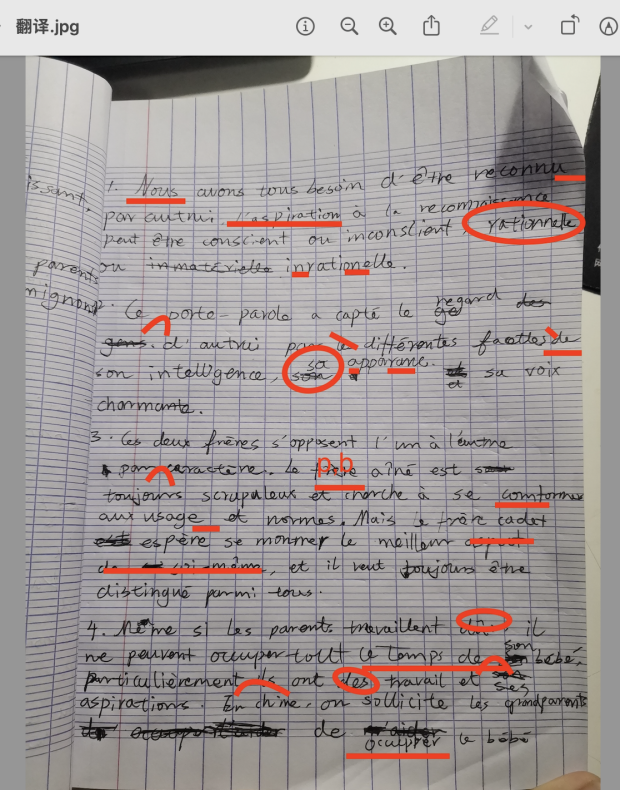 翻译.jpg
issant.
parents
mignons
1. Nous avons tous besoin d'être reconnu
par autrui. L'aspiration à la reconnaissance
peut être conscient ou inconscient, rationnelle
ou inmatérielle inrationelle.
2. Ce porte-parole a capté le regard des
gens. d'autrui par le différentes facettes de
son intelligence, sa apparence. et sa voix
charmante.
3. Ces deux frères s'opposent l'un à l'autre
par caractère. Le frère aîné est
pb
toujours scrupuleux et cherche à se comformer
aux usage et normes. Mais le frère cadet
espère se montrer le meilleur aspect
de soi-même, et il veut toujours être
distingué parmi tous.
4. Même si les parents travaillent dûr, il
ne peuvent occuper tout le temps de son bébé,
particulièrement ils ont des travail et ses
aspirations. En chine, on sollicite les grandparents
de occuper le bébé